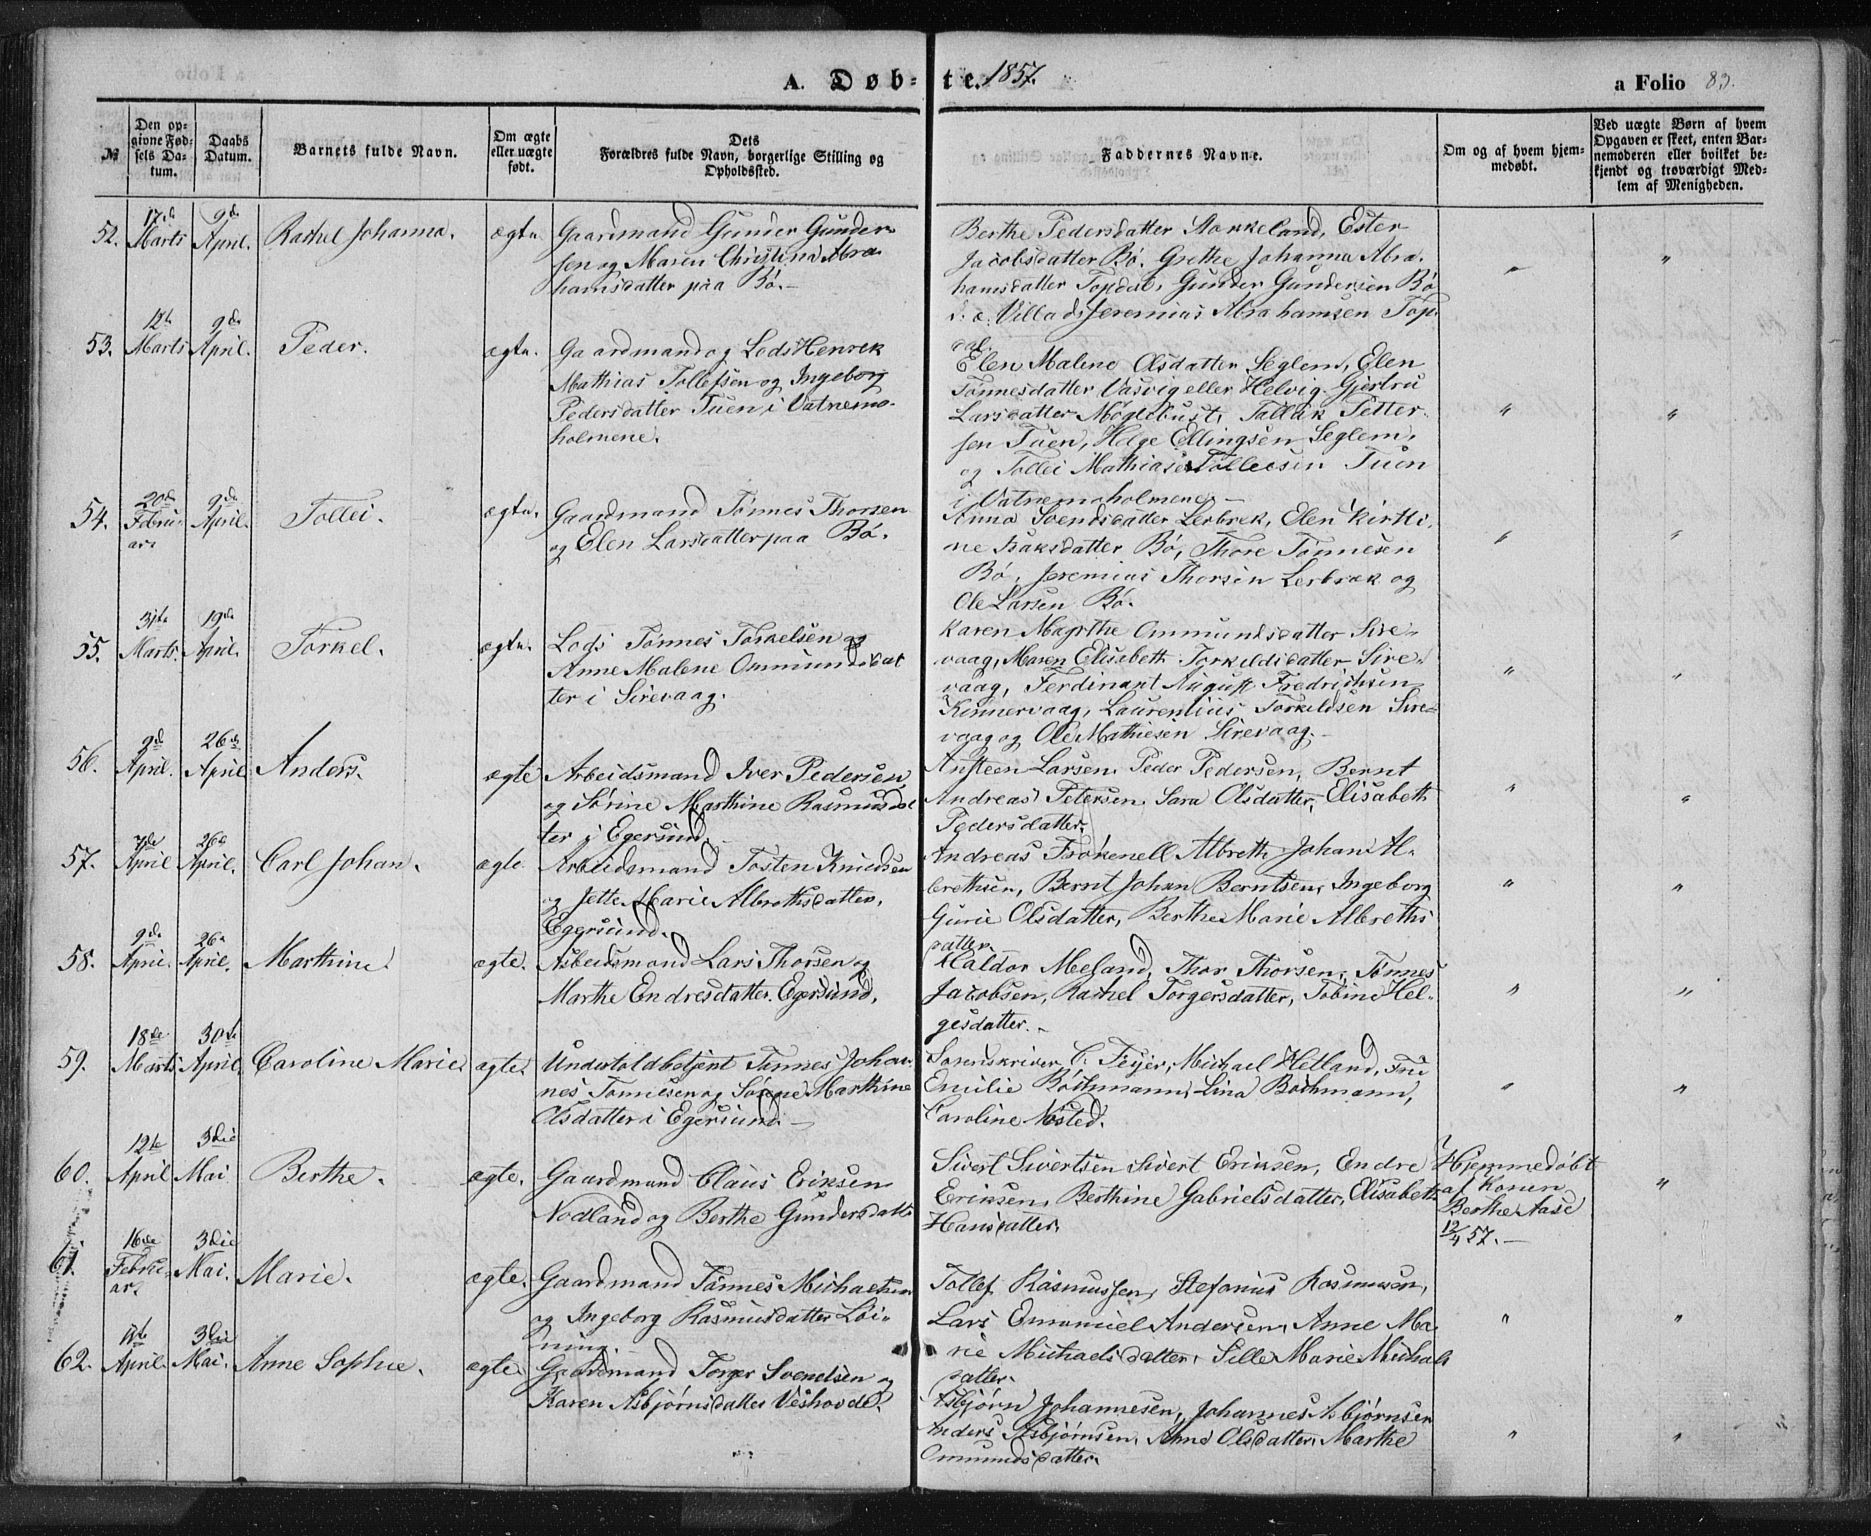 A. Døb- te. 1857.
a Folio 83.
№
Den op-
givne Fød-
sels Da-
tum.
Daabs
Datum.
Barnets fulde Navn.
Om ægte
eller uægte
født.
Dets
Forældres fulde Navn, borgerlige Stilling og
Opholdssted.
Faddernes Navne.
Om og af hvem hjem-
medøbt.
Ved uægte Børn af hvem
Opgaven er skeet, enten Bar-
nemoderen eller hvilket be-
kjendt og troværdigt Med-
lem af Menigheden.
52. 17de Marts 9de April. Rachel Johanna. ægte.
Gaardmand Gunder Gunder-
sen og Maren Christina Abra-
hamsdatter paa Bø.-
Berthe Pedersdatter Aarkeland, Ester
Jacobsdatter Bø. Grethe Johanna Abra-
hamsdatter Topdal, Gunder Gundersen Bø
d.æ. Villads Jeremias Abrahamsen Top-
dal.
53. 12te Marts 9de April. Peder. ægte.
Gaardmand og Lods Henrek
Mathias Tollefsen og Ingeborg
Pedersdatter Tuen i Vatnemo-
holmene.
Elen Malene Olsdatter Seglem, Elen
Tønnesdatter Vasvig eller Helvig. Gjertru
Larsdatter Møglebust, Tallak Petter-
sen Tuen, Helge Ellingsen Seglem,
og Tollei Mathiasen Tolleosen Tuen
i Vatnemoholmene.-
54. 20de Febru-
ar. 9de April. Tollei. ægte.
Gaardmand Tønnes Thorsen
og Elen Larsdatter paa Bø.
Anna Svendsdatter Lerbrek, Elen Kirsti-
ne Isaksdatter Bø, Thore Tønnesen
Bø, Jeremias Thorsen Lerbrek og
Ole Larsen Bø.
55. 31te Marts. 19de April. Torkel. ægte.
Lods Tønnes Torkelsen og
Anne Malene Ommundsdat
ter i Sirevaag.
Karen Magrthe Ommundsdatter Sire-
vaag, Maren Elisabeth Torkeldsdatter Sire-
vaag, Ferdinant August Fredrichsen
Kinnervaag, Laurentius Torkeldsen Sire-
vaag og Ole Mathiesen Sirevaag.-
56. 2de April. 26de April Anders. ægte
Arbeidsmand Iver Pedersen
og Sørine Marthine Rasmusdat
ter i Egersund.-
Ansteen Larsen, Peder Pedersen, Bernt
Andreas Petersen, Sara Olsdatter, Elisabeth
Pedersdatter.
57. 7de April 26de April. Carl Johan. ægte
Arbeidsmand Tosten Knudsen
og Jette Marie Albrethsdatter,
Egersund.
Andreas Frøkenell Albreth Johan Al-
brethsen, Bernt Johan Berntsen, Ingeborg
Gurie Olsdatter, Berthe Marie Albreths
datter.
58. 9de April. 26de April. Marthine. ægte.
Arbeidsmand Lars Thorsen og
Marthe Endresdatter. Egersund.
Haldor Meland, Thor Thorsen, Tønnes
Jacobsen, Rachel Torgersdatter, Tobine Hel-
gesdatter.-
59. 18de Marts 30te April. Caroline Marie. ægte.
Undertoldbetjent Tønnes Johan-
nes Tønnesen og Sørine Marthine
Olsdatter i Egersund.-
Sorenskriver C. Feyer, Michael Hetland, Fru
Emilie Bøthmann, Lina Bøthmann,
Caroline Nisted.
60. 12te April 3die Mai Berthe. ægte.
Gaardmand Claus Eriksen
Nodland og Berthe Gundersdatt.
Sivert Sivertsen, Sivert Eriksen, Endre
Eriksen, Berthine Gabrielsdatter, Elisabeth
Hansdatter.
Hjemmedøbt
af Konen
Berthe Aase
12/4 57.-
61. 16de Febru-
ar. 3die Mai. Marie. ægte.
Gaardmand Tønnes Michaelsen
og Ingeborg Rasmusdatter Løi-
ning.
Tollef Rasmussen, Stefanius Rasmussen,
Lars Emanuel Andersen, Anne Ma-
rie Michaelsdatter, Sille Marie Michaels
datter.
62. 11te April. 3die Mai. Anne Sophie. ægte.
Gaardmand Torger Svendsen og
Karen Asbjørnsdatter Veshovde.
Asbjørn Johannesen, Johannes Asbjørnsen
Anders Asbjørnsen, Anne Olsdatter, Marthe
Ommundsdatter.